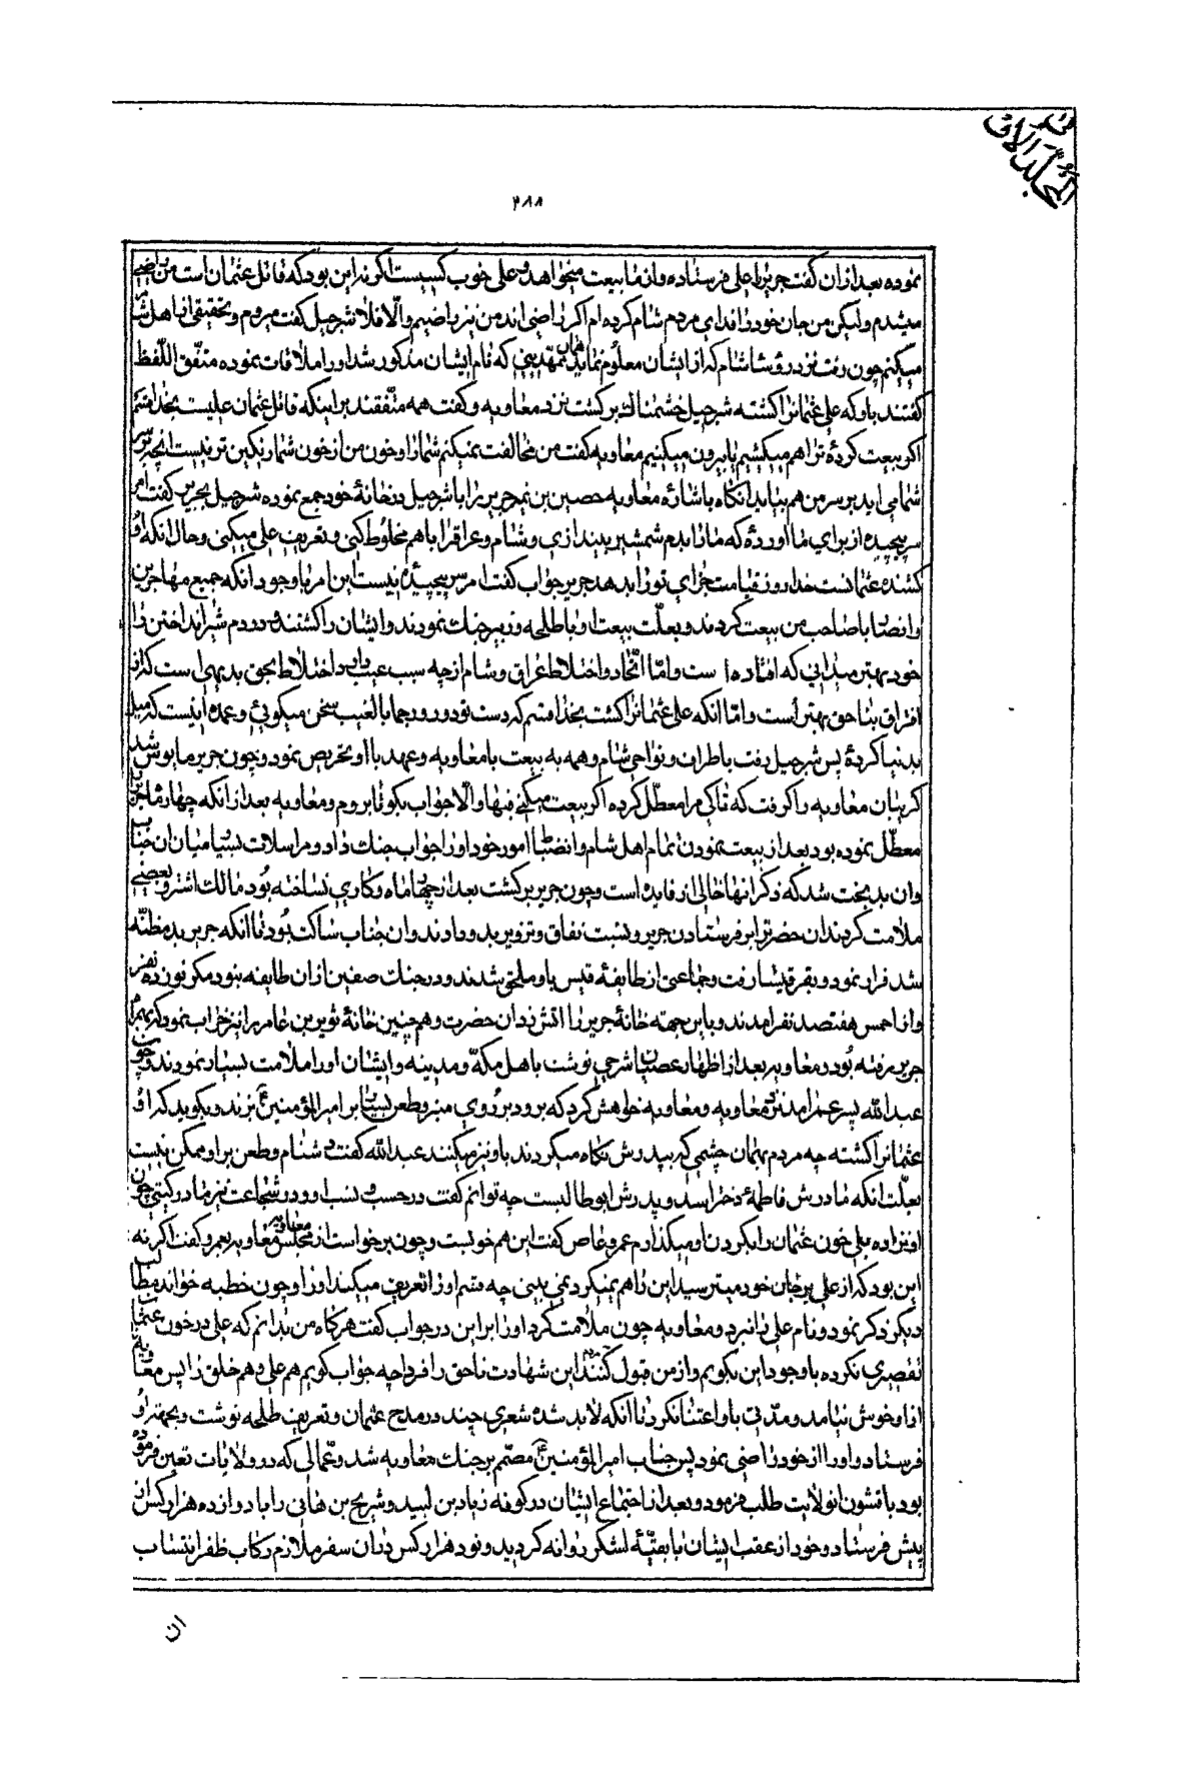 المجلد الاول
۲۸۸
نموده بعد از ان کفت جریر را علی فرستاده و از ما بیعت میخواهد و علی خوب کسیست اکر نه این بود که قاتل عثمان است من راضی
میشدم ولیکن من جان خود را فدای مردم شام کرده ام اکر راضی اند من نیز راضیم والّا فلا شرجیل کفت میروم و تحقیقی از اهل شام
میکنم چون رفت نزد رؤسا شام که از ایشان معلوم نماید همان تمهید که نام ایشان مذکور شد او را ملاقات نموده متفّق اللّفظ
کفتند باو که علی عثمانرا کشته شرجیل خشمناک برکشت نزد معاویه و کفت همه متّفقند براینکه قاتل عثمان علیست بخدا قسم
اکر بیعت کردۀ ترا هم میکشیم یا بیرون میکنیم معاویه کفت من مخالفت نمیکنم شما را و خون من از خون شما رنکین تر نیست انچه بر سر
شما می اید بر سر من هم بیاید انکاه باشارۀ معاویه حصین بن نمیر جریر را با شرجیل در خانۀ خود جمع نموده شرجیل بجریر کفت امر
سر پیچیده از برای ما اوردۀ که ما را بدم شمشیر بیندازی و شام و عراقرا با هم مخلوُط کنی و تعریف علی میکنی و حال انکه او
کشنده عثمانست خدا روز قیامت جزای تو را بدهد جریر جواب کفت امر سر پیچیدۀ نیست این امر با وجود انکه جمیع مهاجرین
و انصار با صاحب من بیعت کردند و بعلّت بیعت او با طلحه و زبیر جنک نمودند و ایشان را کشتند و در دم شمشیر انداختن را
خود بهتر میدانی که افتاده است و امّا اتّحاد و اختلاط عراق و شام از چه سبب عیب دارد اختلاط بحق بدیهی است که از
افتراق بناحق بهتر است و امّا انکه علی عثمانرا کشت بخدا قسم که دست تو دور و رجما بالغیب سخن میکوئی و عمده اینست که میل
بدنیا کردۀ پس شرجیل رفت باطراف و نواحی شام و همه به بیعت با معاویه و عهد با او تحریص نمود و چون جریر مایوس شد
کریبان معاویه را کرفت که تا کی مرا معطّل کرده اکر بیعت میکنی فبها والّا جواب بکو تا بروم و معاویه بعد از انکه چهار ماه جریر را
معطّل نموده بود بعد از بیعت نمودن تمام اهل شام و انضباط امور خود او را جواب جنک داد و مراسلات بسیار میان ان جناب
و ان بدبخت شد که ذکر انها خالی از فایده است و چون جریر برکشت بعد از چهار ماه و کاری نساخته بُود مالک اشتر و بعضی
ملامت کردند ان حضرترا بر فرستادن جریر و نسبت نفاق و تزویر بدو دادند و ان جناب ساکت بُود تا انکه جریر بد مظنّه
شد فرار نمود و بقرقیسا رفت و جماعتی از طایفۀ قیس باو ملحق شدند و در جنک صفین از ان طایفه نبود مکر نوزده نفر
و از احمس هفتصد نفر امدند و باین جهته خانۀ جریر را اتش زد ان حضرت و همچنین خانۀ ثویر بن عامر را نیز خراب نمود که همراه
جریر رفته بُود و معاویه بعد از اظهار عصیان شرحی نوشت باهل مکّه و مدینه و ایشان او را ملامت بسیار نمودند و چون
عبدالله پسر عمر امد نزد معاویه و معاویه خواهش کرد که برود بر روی منبر و طعن بسیار بر امیرالمؤمنینؑ بزند و بکوید که او
عثمانرا کشته چه مردم بهمان چشمی که بپدرش نکاه میکردند باو نیز میکنند عبدالله کفت دشنام و طعن بر او ممکن نیست
بعلّت انکه مادرش فاطمۀ دختر اسد و پدرش ابوطالبست چه توانم کفت در حسب و نسب او و در شجاعت نیز مادر کیتی چون
او نزاده بلی خون عثمان را بکردن او میکذارم عمرو عاص کفت این هم خوبست و چون برخواست از مجلس معاویه معاویه بعمرو کفت اکر نه
این بود که از علی بر جان خود میترسید این را هم نمیکرد نمی بینی چه قسم او را تعریف میکند او را و چون خطبه خواند مطالب
دیکر ذکر نمود و نام علی را نبرد و معاویه چون ملامت کرد او را برابر این در جواب کفت هرکاه من بدانم که علی در خون عثمان
تقصیری نکرده با وجود این بکویم و از من قبول کنند این شهادت ناحق را فردا چه جواب کویم هم علی و هم خلق را پس معاویه
از او خوش نیامد و مدّتی باو اعتنا نکرد تا انکه لابد شده شعری چند در مدح عثمان و تعریف طلحه نوشت و بجهته او
فرستاد و او را از خود راضی نمود پس جناب امیرالمؤمنینؑ مصمّم بر جنک معاویه شد و عمّالی که در ولایات تعیین فرموده
بود با قشون ان ولایت طلب فرمود و بعد از اجتماع ایشان در کوفه زیاد بن لبید و شریح بن هانی را با دوازده هزار کس از
پیش فرستاد و خود از عقب ایشان با بقیّۀ لشکر روانه کردید و نود هزار کس در ان سفر ملازم رکاب ظفر انتساب
ان